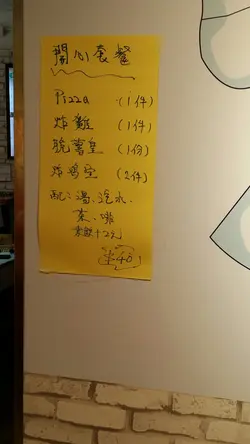 開心套餐
Pizza (1件)
炸雞 (1件)
脆薯皇 (1份)
炸鸡全 (2件)
配:湯、汽水、
茶、啡
凍飲+2元
$40